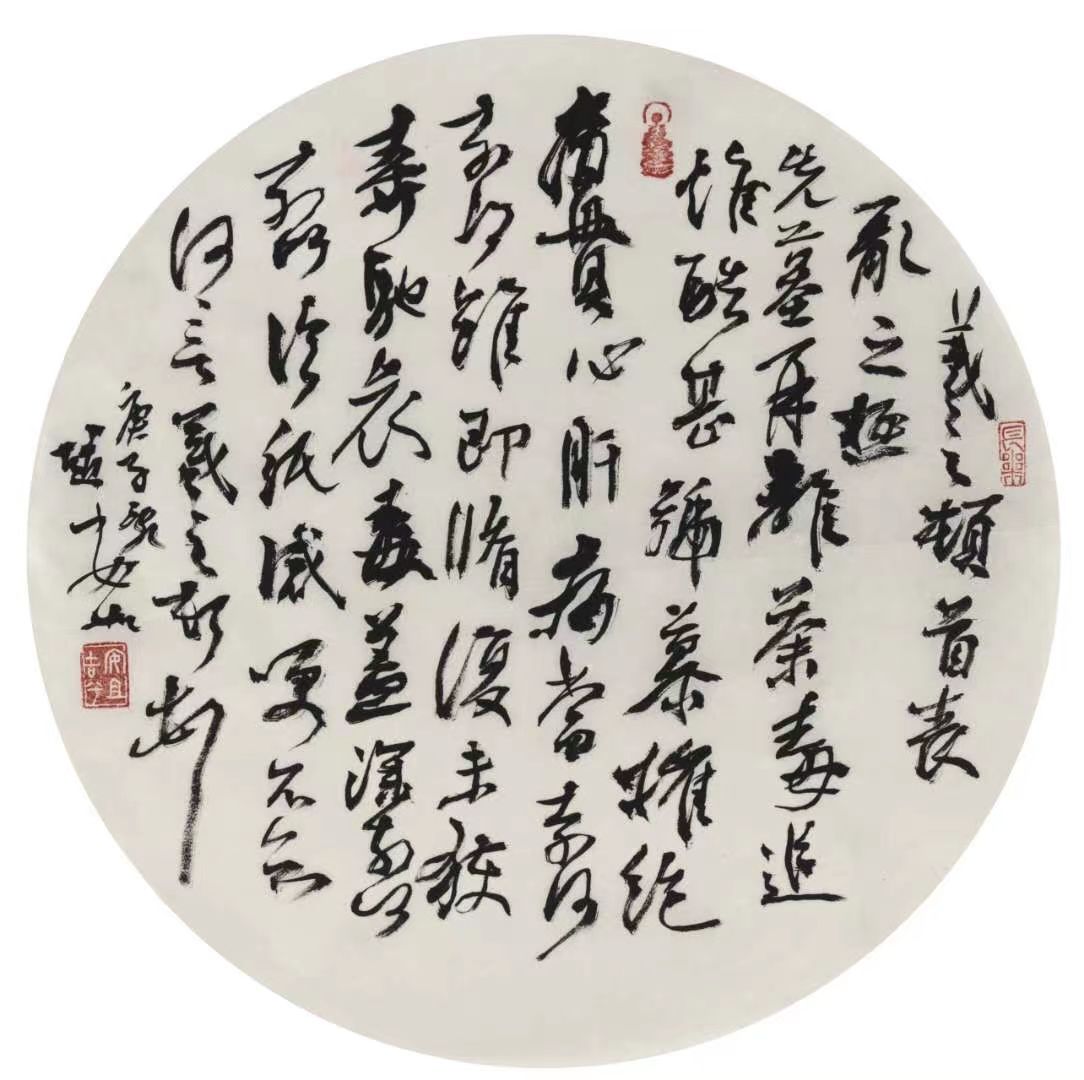 羲之頓首喪
亂之極
先墓再離荼毒追
惟酷甚號慕摧絕
痛貫心肝痛當奈何
奈何雖即脩復未獲
奔馳哀毒益深奈何
奈何臨紙感哽不知
何言羲之頓首
庚子
趙
長樂
安且吉兮